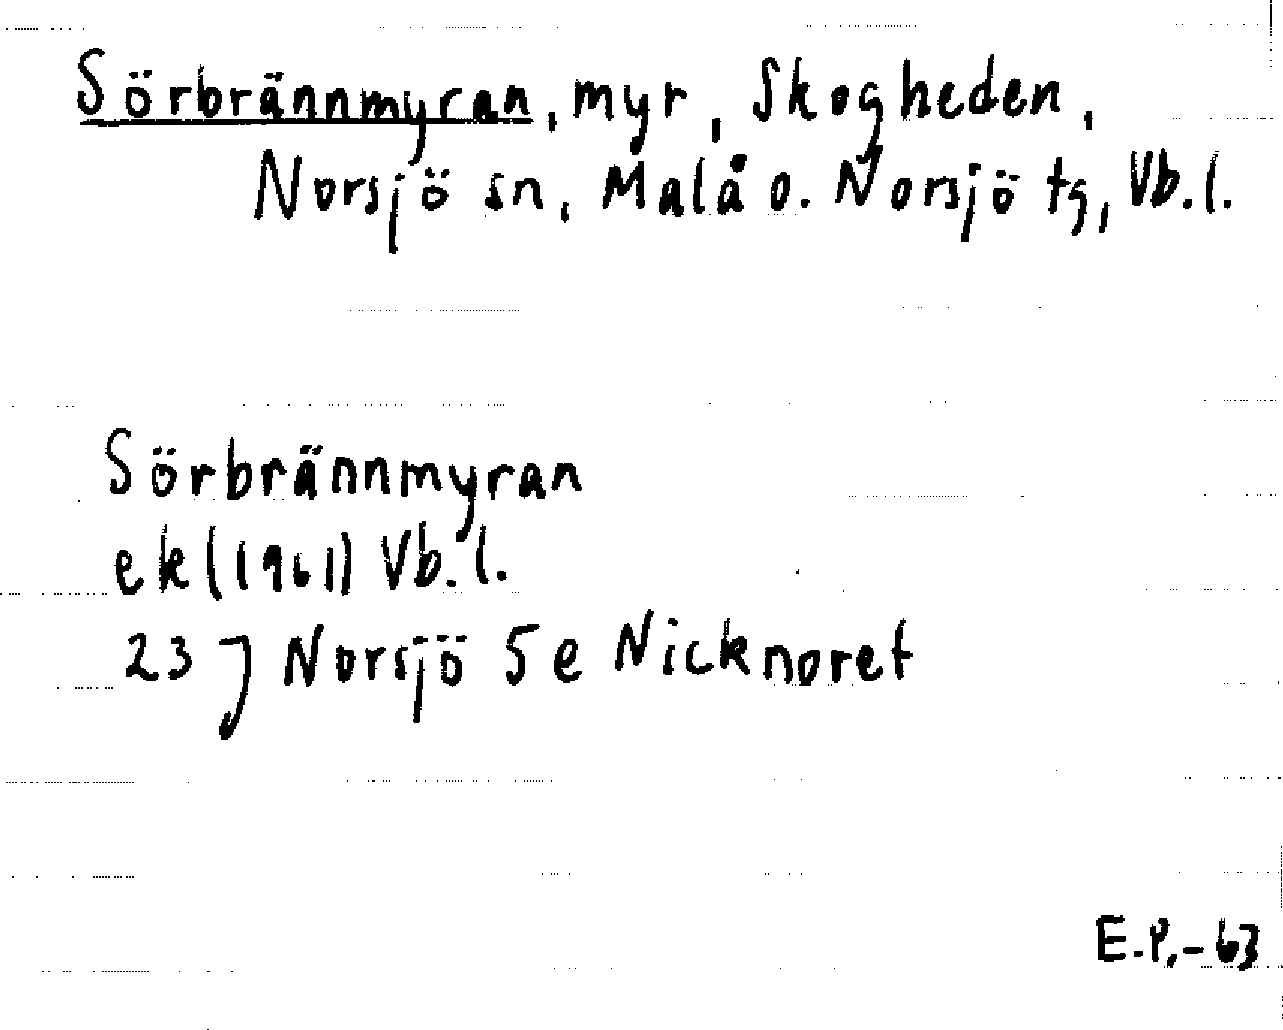 Sörbrännmyran, myr, Skogheden,
Norsjö sn, Malå o. Norsjö tg, Vb.l.
Sörbrännmyran
ek (1961) Vb.l.
23 J Norsjö 5e Nicknoret
E.P.-63